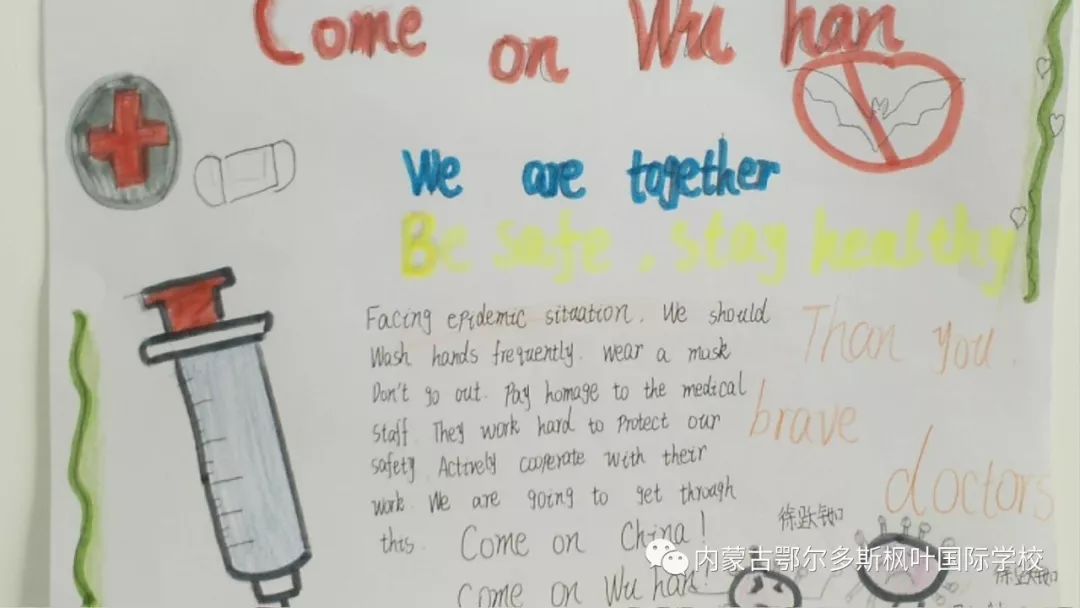 Come on Wu han
We are together
Be safe . stay healthy
Facing epidemic situation. We should
Wash hands frequently. wear a mask
Don't go out. Pay homage to the medical
staff. They work hard to Protect our
safety. Actively cooperate with their
work. We are going to get through
this.
Come on China!
come on Wu han!
Than you.
brave
doctors
内蒙古鄂尔多斯枫叶国际学校